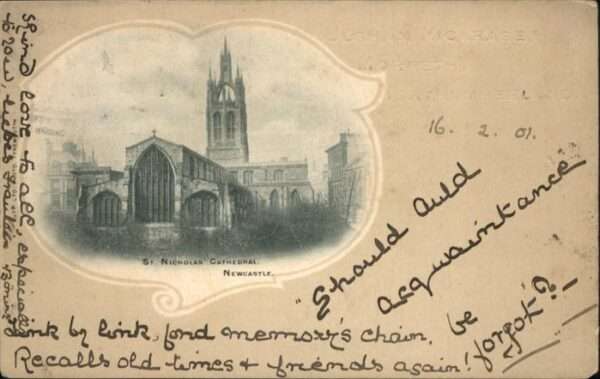 16. 2. 01.
St. Nicholas' Cathedral.
Newcastle.
"Should Auld
acquaintance
be
forgot"?
Link by link, fond memory's chain,
Recalls old times & friends again!
Kind love to all, especially
to you, liebes